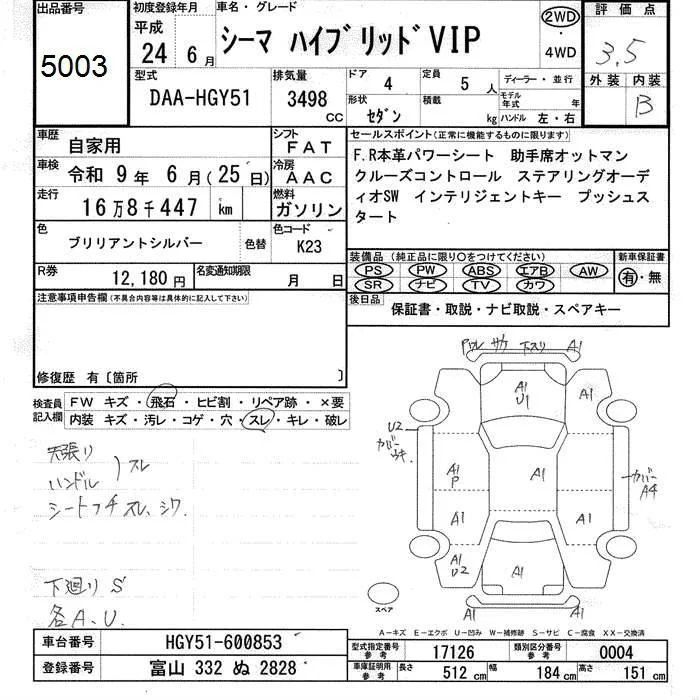 出品番号
5003
初度登録年月
平成
24 6月
車名・グレード
シーマ ハイブリッドVIP
2WD
・
4WD
評価点
3.5
外装 内装
B
型式
DAA-HGY51
排気量
3498 CC
ドア 4
定員 5人
ディーラー・並行
形状 セダン
積載 kg
モデル年式 年
ハンドル 左・右
車歴 自家用
シフト FAT
車検 令和 9年 6月(25日)
冷房 AAC
走行 16万8千447 km
燃料 ガソリン
色 ブリリアントシルバー 色替
色コード K23
R券 12,180円
名変通知期限 月 日
セールスポイント(正常に機能するものに限ります)
F.R本革パワーシート 助手席オットマン
クルーズコントロール ステアリングオーデ
ィオSW インテリジェントキー プッシュス
タート
装備品(純正品に限り○をつけてください)
PS PW ABS エアB AW
SR ナビ TV カワ
新車保証書
有・無
後日品
保証書・取説・ナビ取説・スペアキー
注意事項申告欄(不具合内容等は具体的に記入して下さい)
修復歴 有〔箇所 〕
検査員記入欄
FW キズ・飛石・ヒビ割・リペア跡・×要
内装 キズ・汚レ・コゲ・穴・スレ・キレ・破レ
天張り
ハンドル )スレ
シートフチ スレ、シワ
下廻り S
各A.U.
下スリ A1
A1
U1
A1
U2
カバー
A1
P
A1
カバー
A4
A1
A1
A1
U2
A1
スペア
A-キズ E-エクボ U-凹み W-補修跡 S-サビ C-腐食 XX-交換済
車台番号 HGY51-600853
登録番号 富山 332 ぬ 2828
型式指定番号 参考 17126
類別区分番号 参考 0004
車庫証明用 参考 長さ 512 cm 幅 184 cm 高さ 151 cm